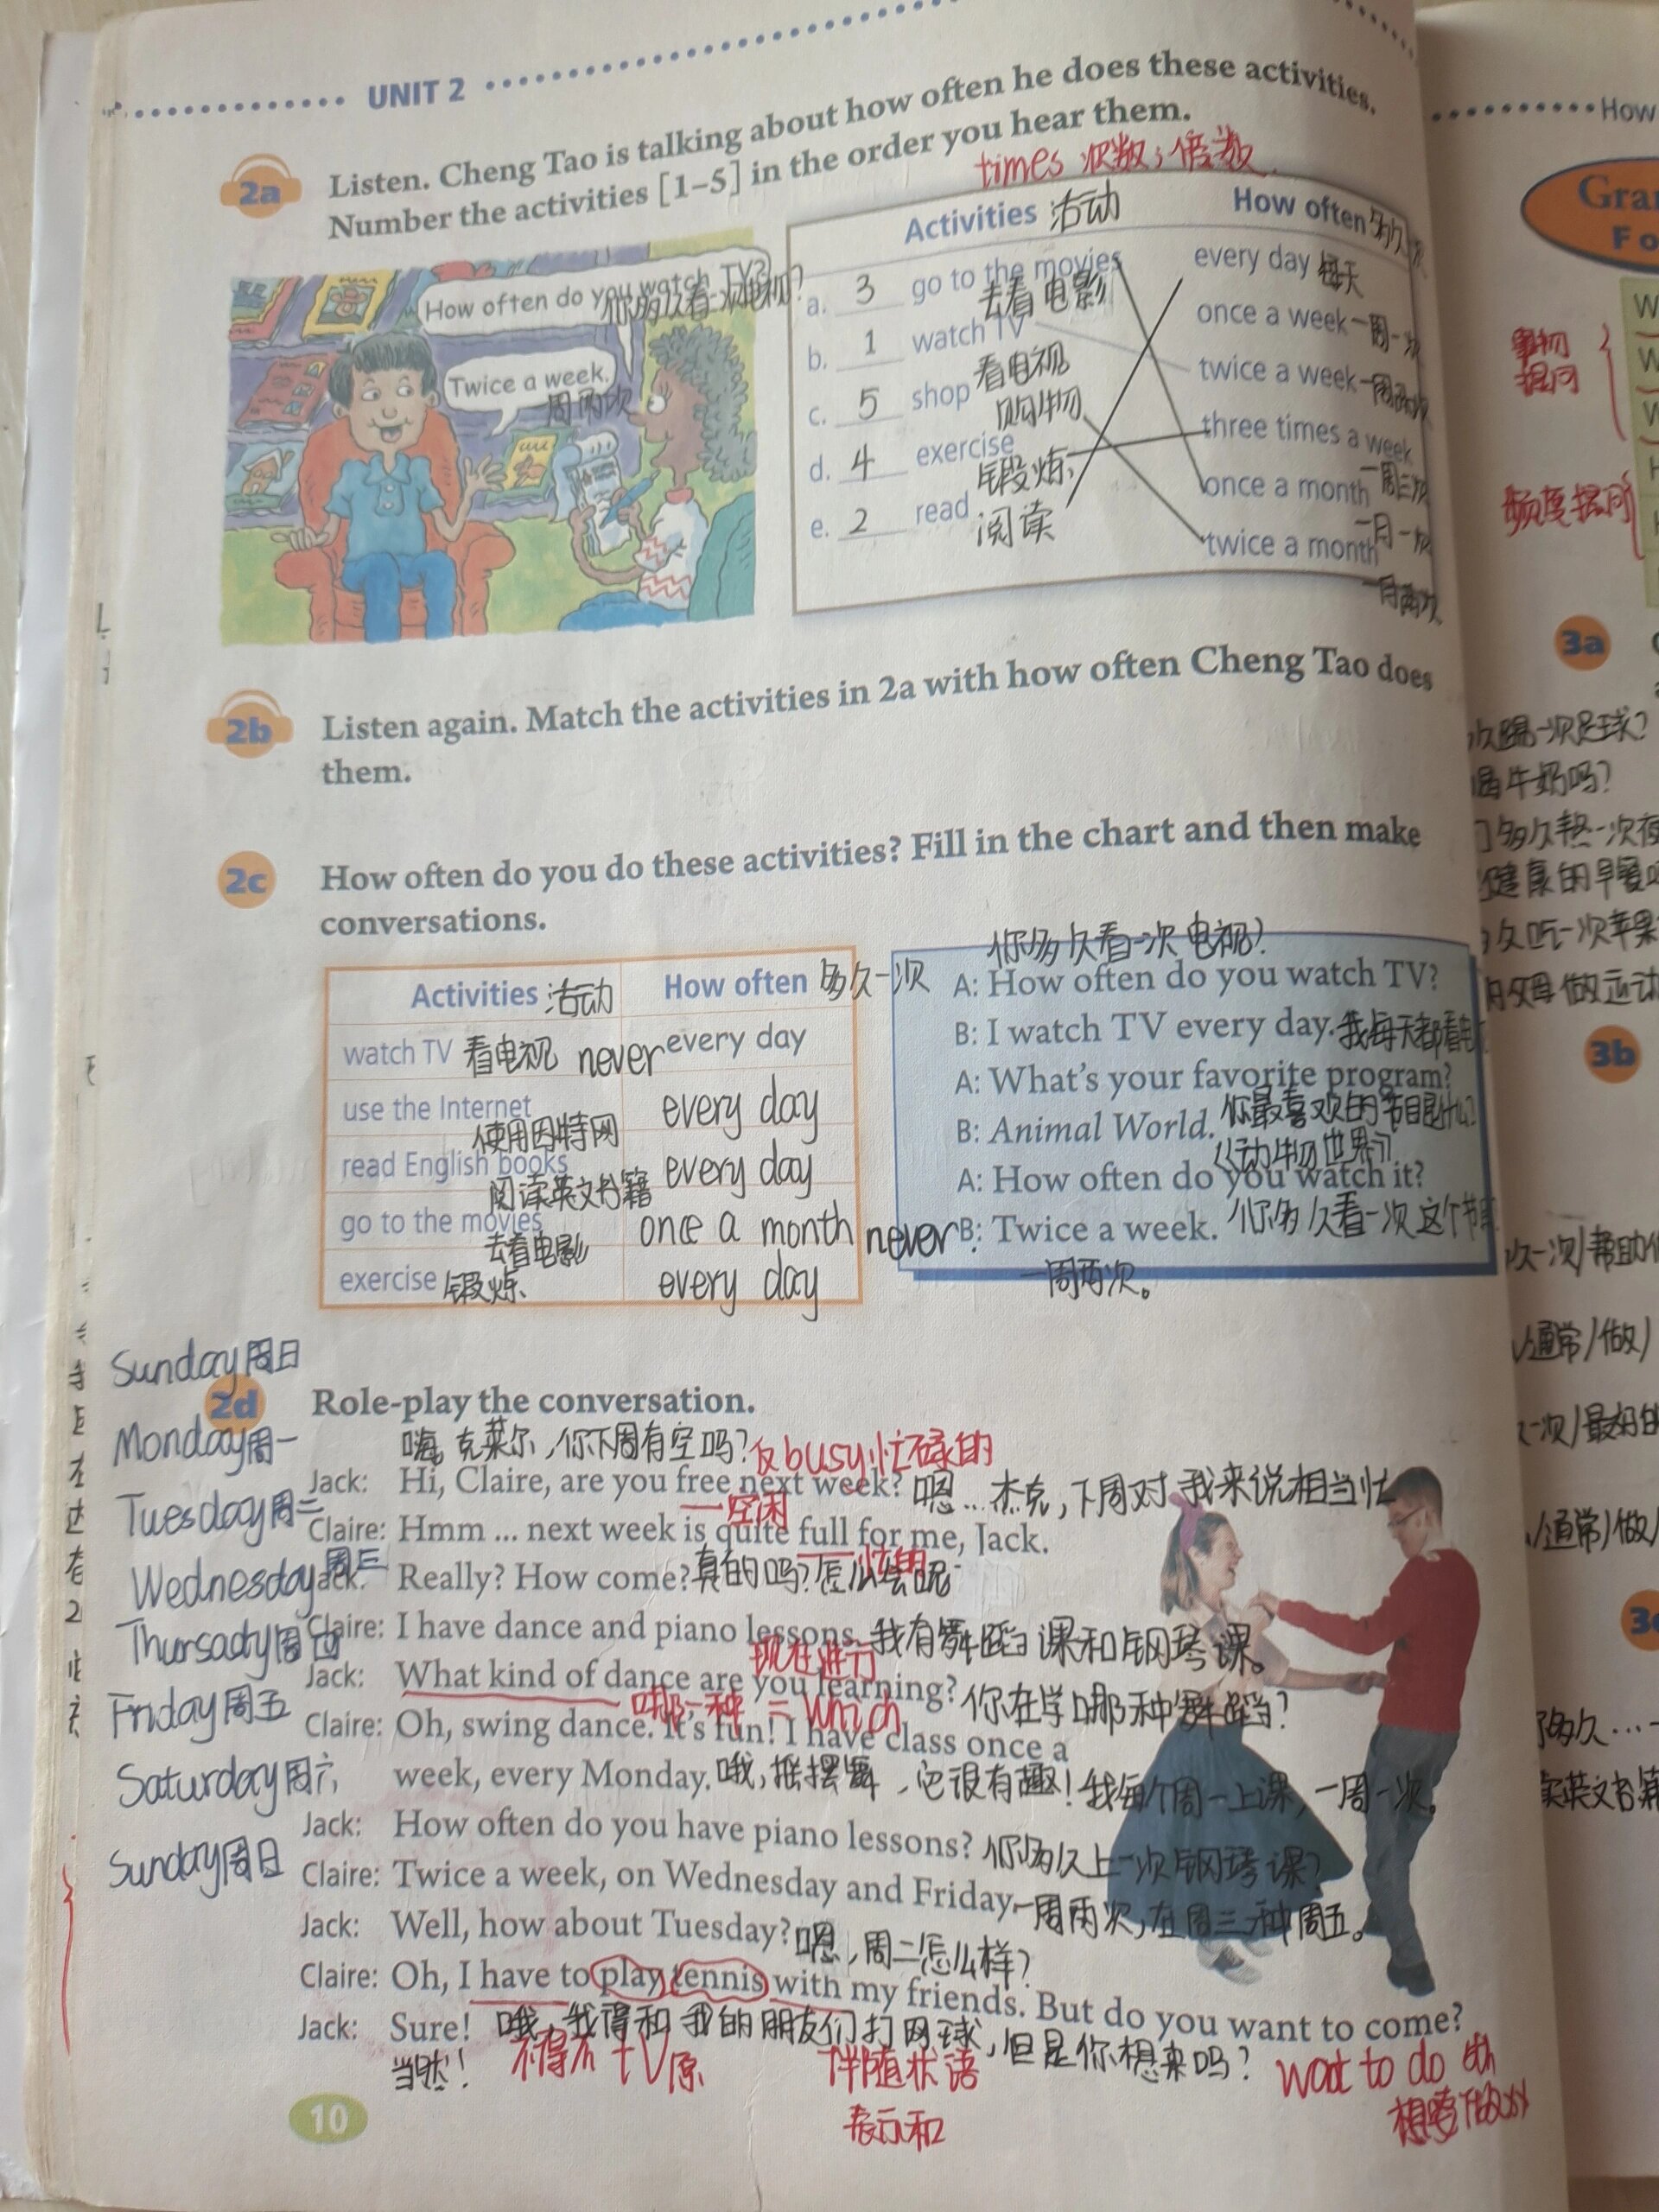 UNIT 2
2a Listen. Cheng Tao is talking about how often he does these activities.
Number the activities [1–5] in the order you hear them.
times 次数；倍数
How often do you watch TV?
你多久看一次电视？
Twice a week.
一周两次
Activities 活动 How often 多久
a. 3 go to the movies 去看电影
b. 1 watch TV 看电视
c. 5 shop 购物
d. 4 exercise 锻炼
e. 2 read 阅读
every day 每天
once a week 一周一次
twice a week 一周两次
three times a week 一周三次
once a month 一月一次
twice a month 一月两次
2b Listen again. Match the activities in 2a with how often Cheng Tao does
them.
2c How often do you do these activities? Fill in the chart and then make
conversations.
Activities 活动 How often 多久一次
watch TV 看电视 never every day
use the Internet 使用因特网 every day
read English books 阅读英文书籍 every day
go to the movies 去看电影 once a month never
exercise 锻炼 every day
你多久看一次电视？
A: How often do you watch TV?
B: I watch TV every day. 我每天都看电
A: What's your favorite program?
你最喜欢的节目是什么？
B: Animal World.
《动物世界》
A: How often do you watch it?
B: Twice a week. 你多久看一次这个节
一周两次。
Sunday周日
Monday周一
Tuesday周二
Wednesday周三
Thursady周四
Friday周五
Saturday周六
Sunday周日
2d Role-play the conversation.
嗨，克莱尔，你下周有空吗？反busy忙碌的
Jack: Hi, Claire, are you free next week? 嗯…杰克，下周对我来说相当忙
空闲
Claire: Hmm ... next week is quite full for me, Jack.
忙的
Jack: Really? How come? 真的吗？怎么会呢
Claire: I have dance and piano lessons. 我有舞蹈课和钢琴课。
现在进行
Jack: What kind of dance are you learning? 你在学哪种舞蹈？
哪一种 = which
Claire: Oh, swing dance. It's fun! I have class once a
week, every Monday. 哦，摇摆舞，它很有趣！我每个周一上课，一周一次。
Jack: How often do you have piano lessons? 你多久上一次钢琴课？
Claire: Twice a week, on Wednesday and Friday. 一周两次，在周三和周五。
Jack: Well, how about Tuesday? 嗯，周二怎么样？
Claire: Oh, I have to play tennis with my friends. But do you want to come?
Jack: Sure! 哦，我得和我的朋友们打网球，但是你想来吗？
当然！ 不得不 +V原 伴随状语 want to do sth
表示和 想要做xx
10
How
Gra
Fo
事物
提问
频度提问
3a
久踢一次足球？
喝牛奶吗？
健康的早餐
多久吃一次苹果
父母做运动
3b
久一次/帮助
/通常/做/
一次/最好的
/通常/做/
3c
多久…一
英文书籍